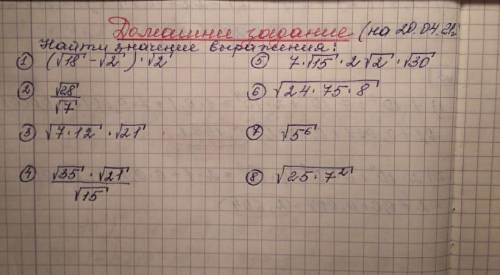 Домашнее задание (на 20.04.21)
Найти значение выражения:
① (√18 - √2) · √2
② √28/√7
③ √7·12 · √21
④ √35 · √21/√15
⑤ 7·√15 · 2√2 · √30
⑥ √24·75·8
⑦ √5⁶
⑧ √25·7²